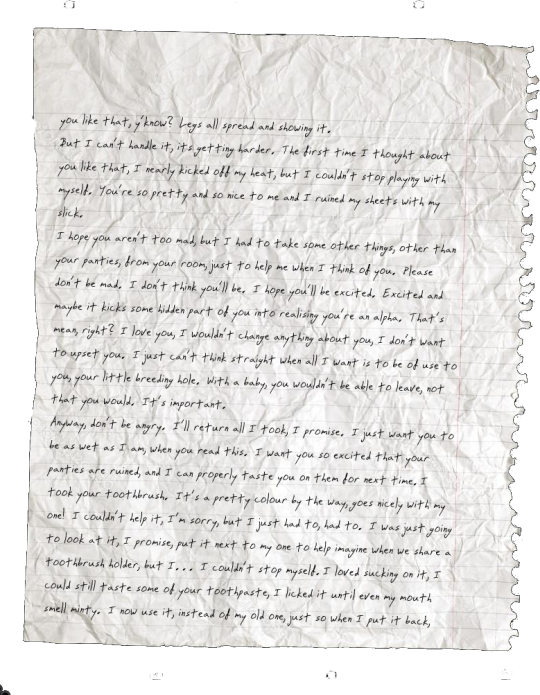 you like that, y'know? Legs all spread and showing it.
But I can't handle it, its getting harder. The first time I thought about
you like that, I nearly kicked off my heat, but I couldn't stop playing with
myself. You're so pretty and so nice to me and I ruined my sheets with my
slick.
I hope you aren't too mad, but I had to take some other things, other than
your panties, from your room, just to help me when I think of you. Please
don't be mad. I don't think you'll be. I hope you'll be excited. Excited and
maybe it kicks some hidden part of you into realising you're an alpha. That's
mean, right? I love you, I wouldn't change anything about you, I don't want
to upset you. I just can't think straight when all I want is to be of use to
you, your little breeding hole. With a baby, you wouldn't be able to leave, not
that you would. It's important.
Anyway, don't be angry. I'll return all I took, I promise. I just want you to
be as wet as I am, when you read this. I want you so excited that your
panties are ruined, and I can properly taste you on them for next time. I
took your toothbrush. It's a pretty colour by the way, goes nicely with my
one! I couldn't help it, I'm sorry, but I just had to, had to. I was just going
to look at it, I promise, put it next to my one to help imagine when we share a
toothbrush holder, but I... I couldn't stop myself. I loved sucking on it, I
could still taste some of your toothpaste, I licked it until even my mouth
smell minty. I now use it, instead of my old one, just so when I put it back,